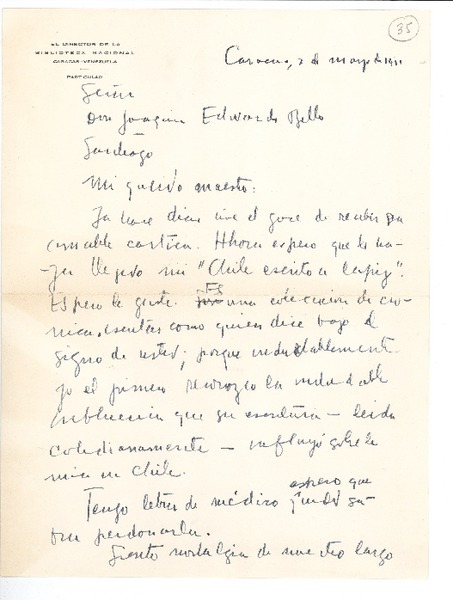 35
EL DIRECTOR DE LA
BIBLIOTECA NACIONAL
CARACAS - VENEZUELA
PARTICULAR
Caracas, 2 de mayo de
Señor
Don Joaquín Edwards Bello
Santiago
Mi querido maestro:
Ya hace días tuve el goce de recibir su
amable cartica. Ahora espero que le ha-
ya llegado mi "Chile escrito a lápiz".
Espero le guste. Es una colección de cró-
nicas, escritas como quien dice bajo el
signo de usted; porque indudablemente
yo el primero reconozco la indudable
influencia que su escritura – leída
cotidianamente – influyó sobre la
mía en Chile.
Tengo letra de médico espero que
perdonarla.
Siento nostalgia de nuestro largo